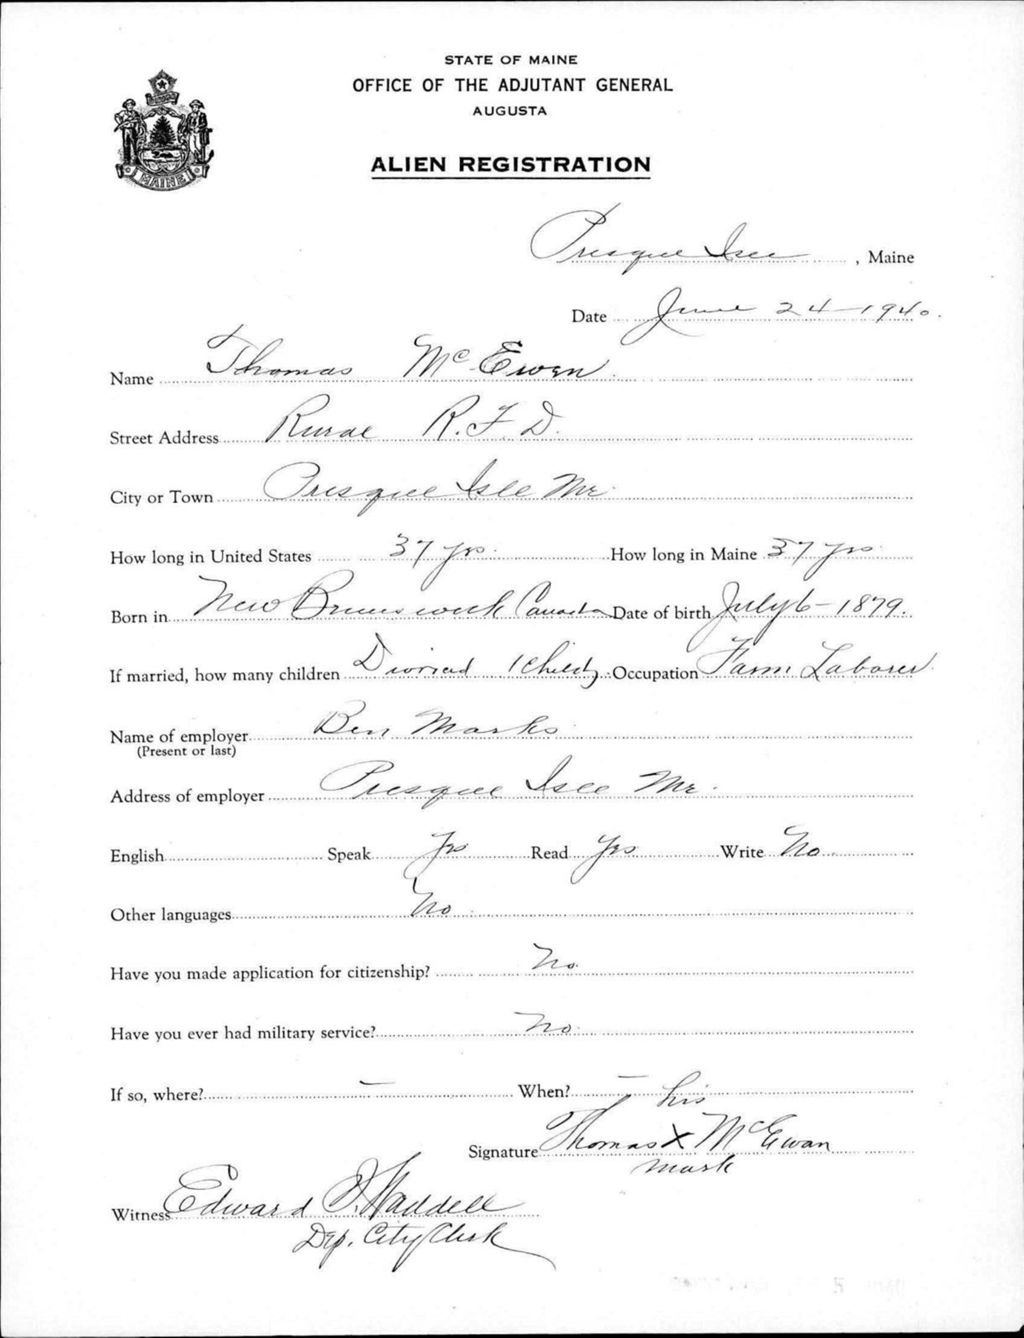 STATE OF MAINE
OFFICE OF THE ADJUTANT GENERAL
AUGUSTA
ALIEN REGISTRATION
MAINE
Presque Isle, Maine
Date June 24-1940.
Name Thomas McEwen
Street Address Rural R.F.D.
City or Town Presque Isle Me.
How long in United States 37 yrs. How long in Maine 37 yrs
Born in New Brunswick Canada Date of birth July 6-1879.
If married, how many children Divorced 1 child Occupation Farm Laborer
Name of employer Ben Marks
(Present or last)
Address of employer Presque Isle Me.
English Speak Yes Read Yes Write No
Other languages No
Have you made application for citizenship? No
Have you ever had military service? No
If so, where? — When? —
his
Signature Thomas X McEwan
mark
Witness Edward J. Waddell
Dep. City Clerk